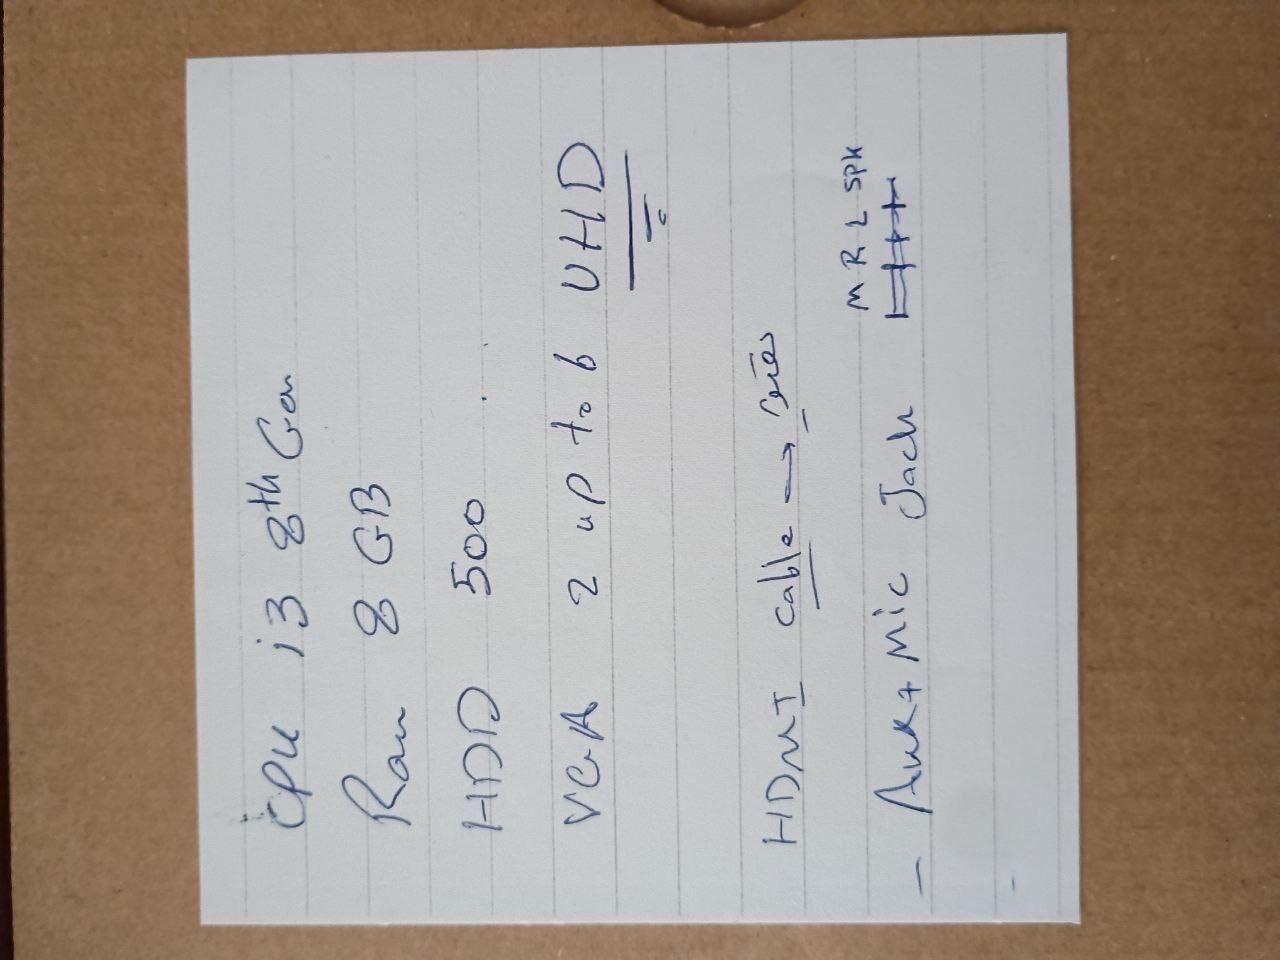 CPU i3 8th Gen
Ram 8 GB
HDD 500
VGA 2 up to 6 UHD
HDMI cable →
M R L SPK
- Aux + Mic Jack
-